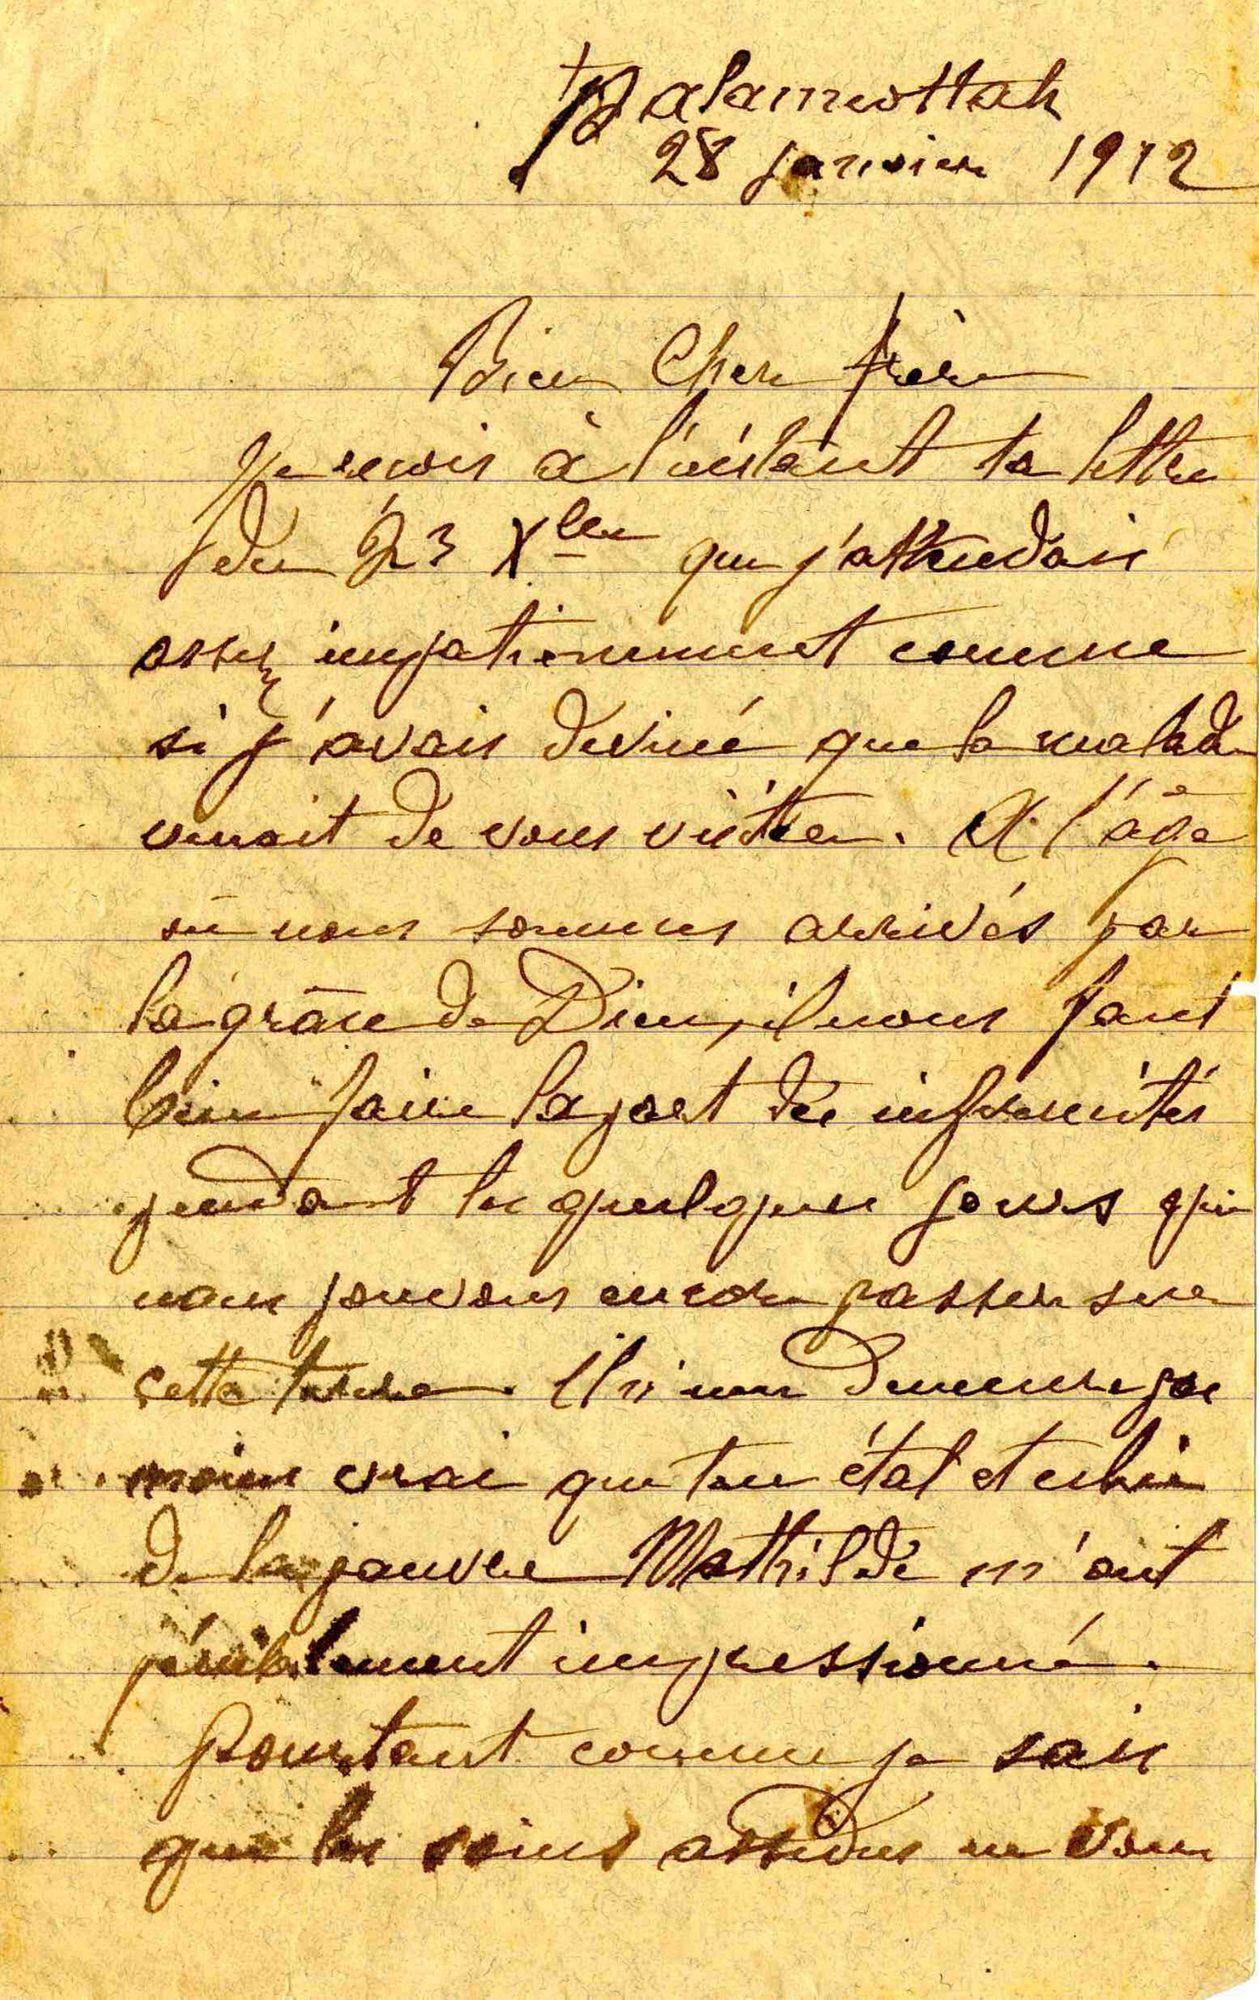 † Palamcottah
28 janvier 1912
Bien Cher frère
Je reçois à l'instant ta lettre
du 23 Xbre que j'attendais
assez impatiemment comme
si j'avais deviné que la maladie
venait de vous visiter. A l'âge
où nous sommes arrivés par
la grâce de Dieu, il nous faut
bien faire la part des infirmités
pendant les quelques jours que
nous pouvons encore passer sur
cette terre. Il n'en demeure pas
moins vrai que ton état et celui
de la pauvre Mathilde m'ont
péniblement impressionné.
Pourtant comme je sais
que les soins assidus ne vous